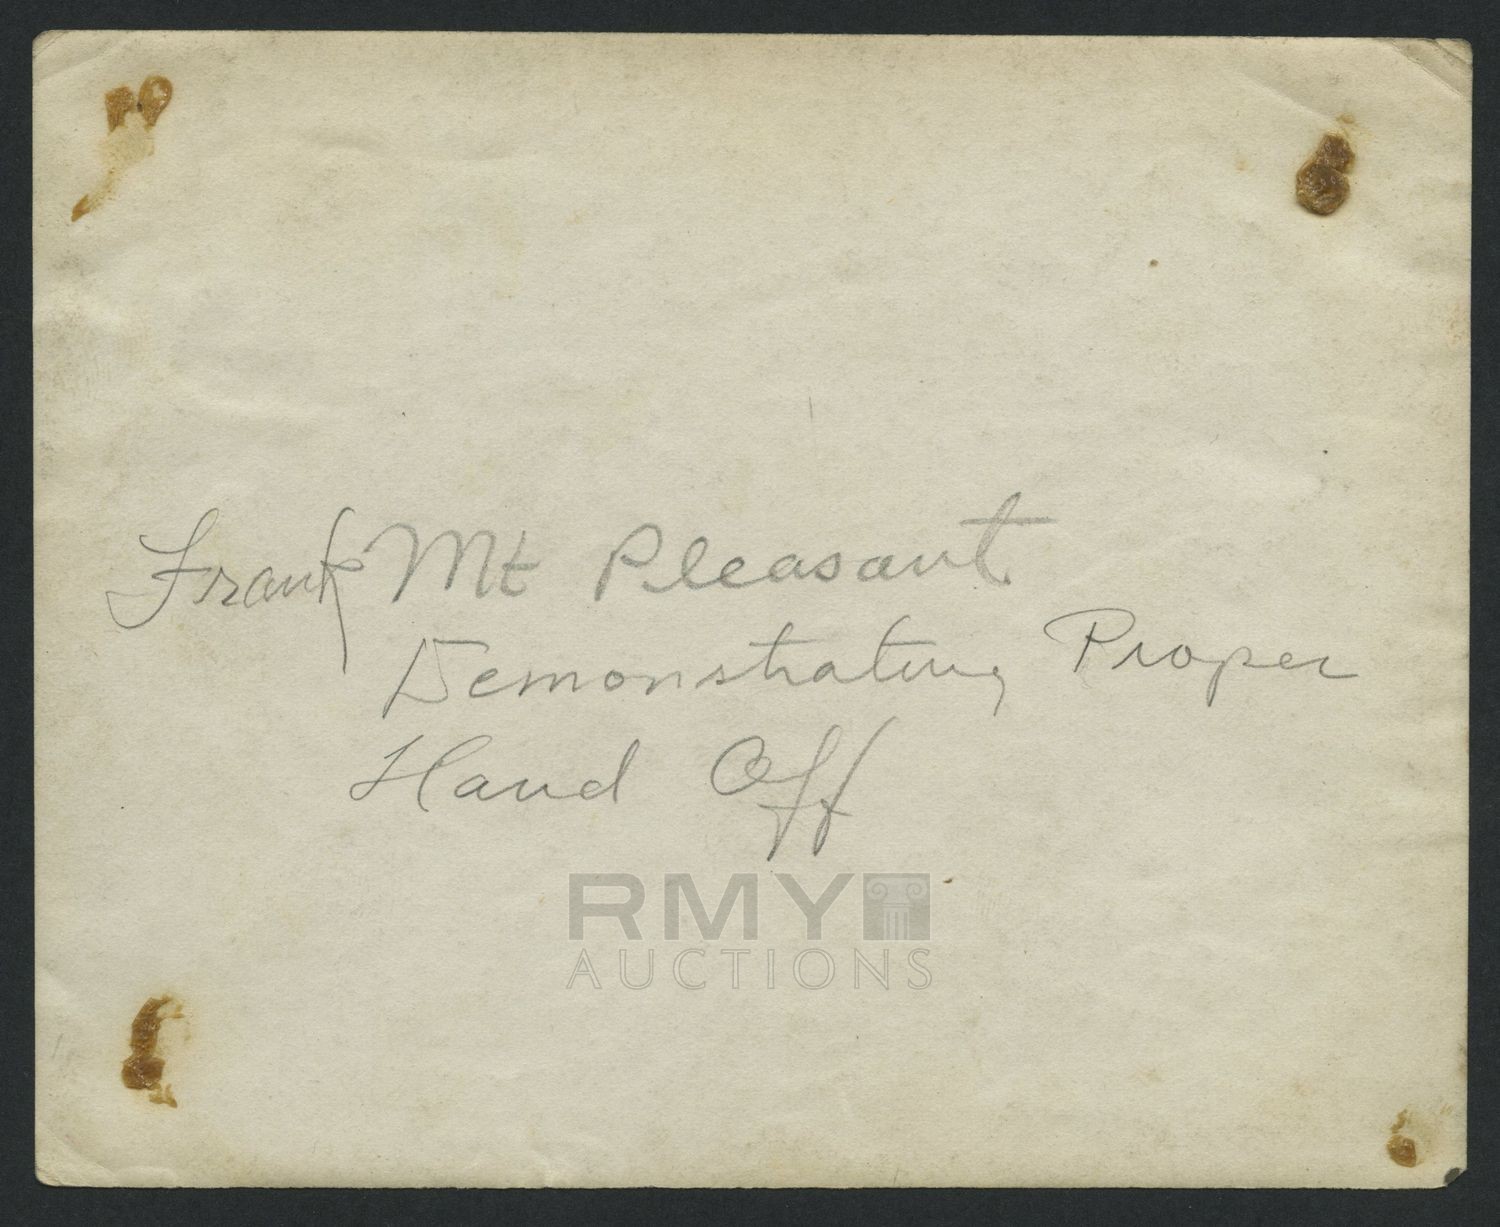 Frank Mt Pleasant.
Demonstrating Proper
Hand Off
RMY
AUCTIONS